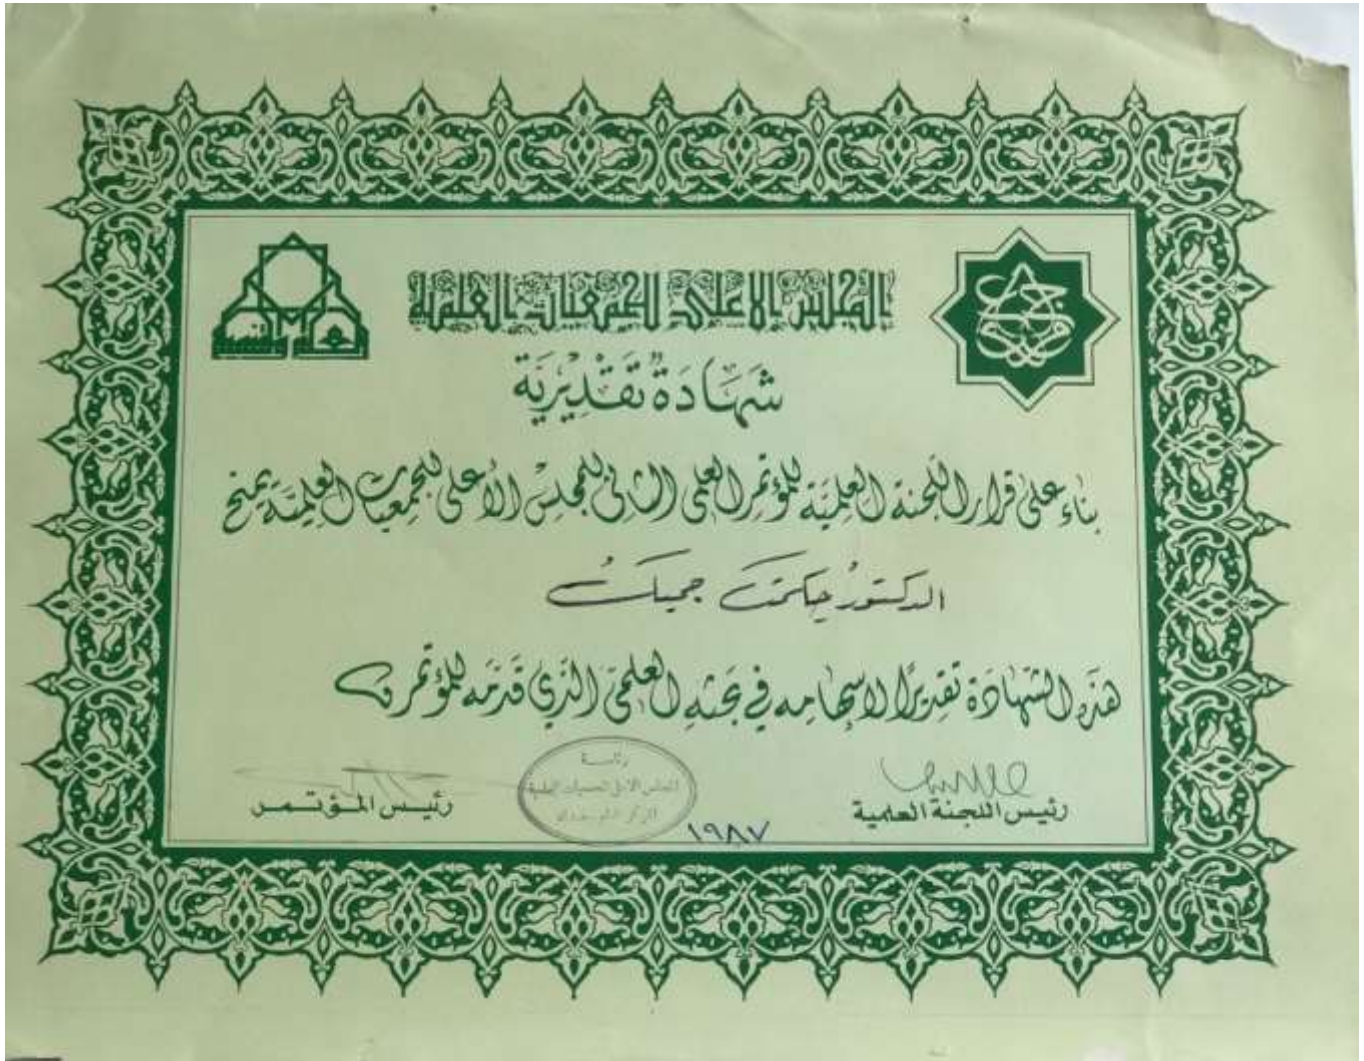 المجلس الاعلى للجمعيات العلمية
العلم والتنمية
شَهَادَةٌ تَقْدِيرِيَّة
بناء على قرار اللجنة العلميَّة للمؤتمر العلمي الثاني للمجلس الأعلى للجمعيات العلميَّة يمنح
الدكتور حكمت جميل
هذه الشهادة تقديرًا لاسهامه في بحثه العلمي الذي قدَمَه للمؤتمر
رئيس اللجنة العلمية
رئيس المؤتمر
رئاسة
المجلس الاعلى للجمعيات العلمية
١٩٨٧